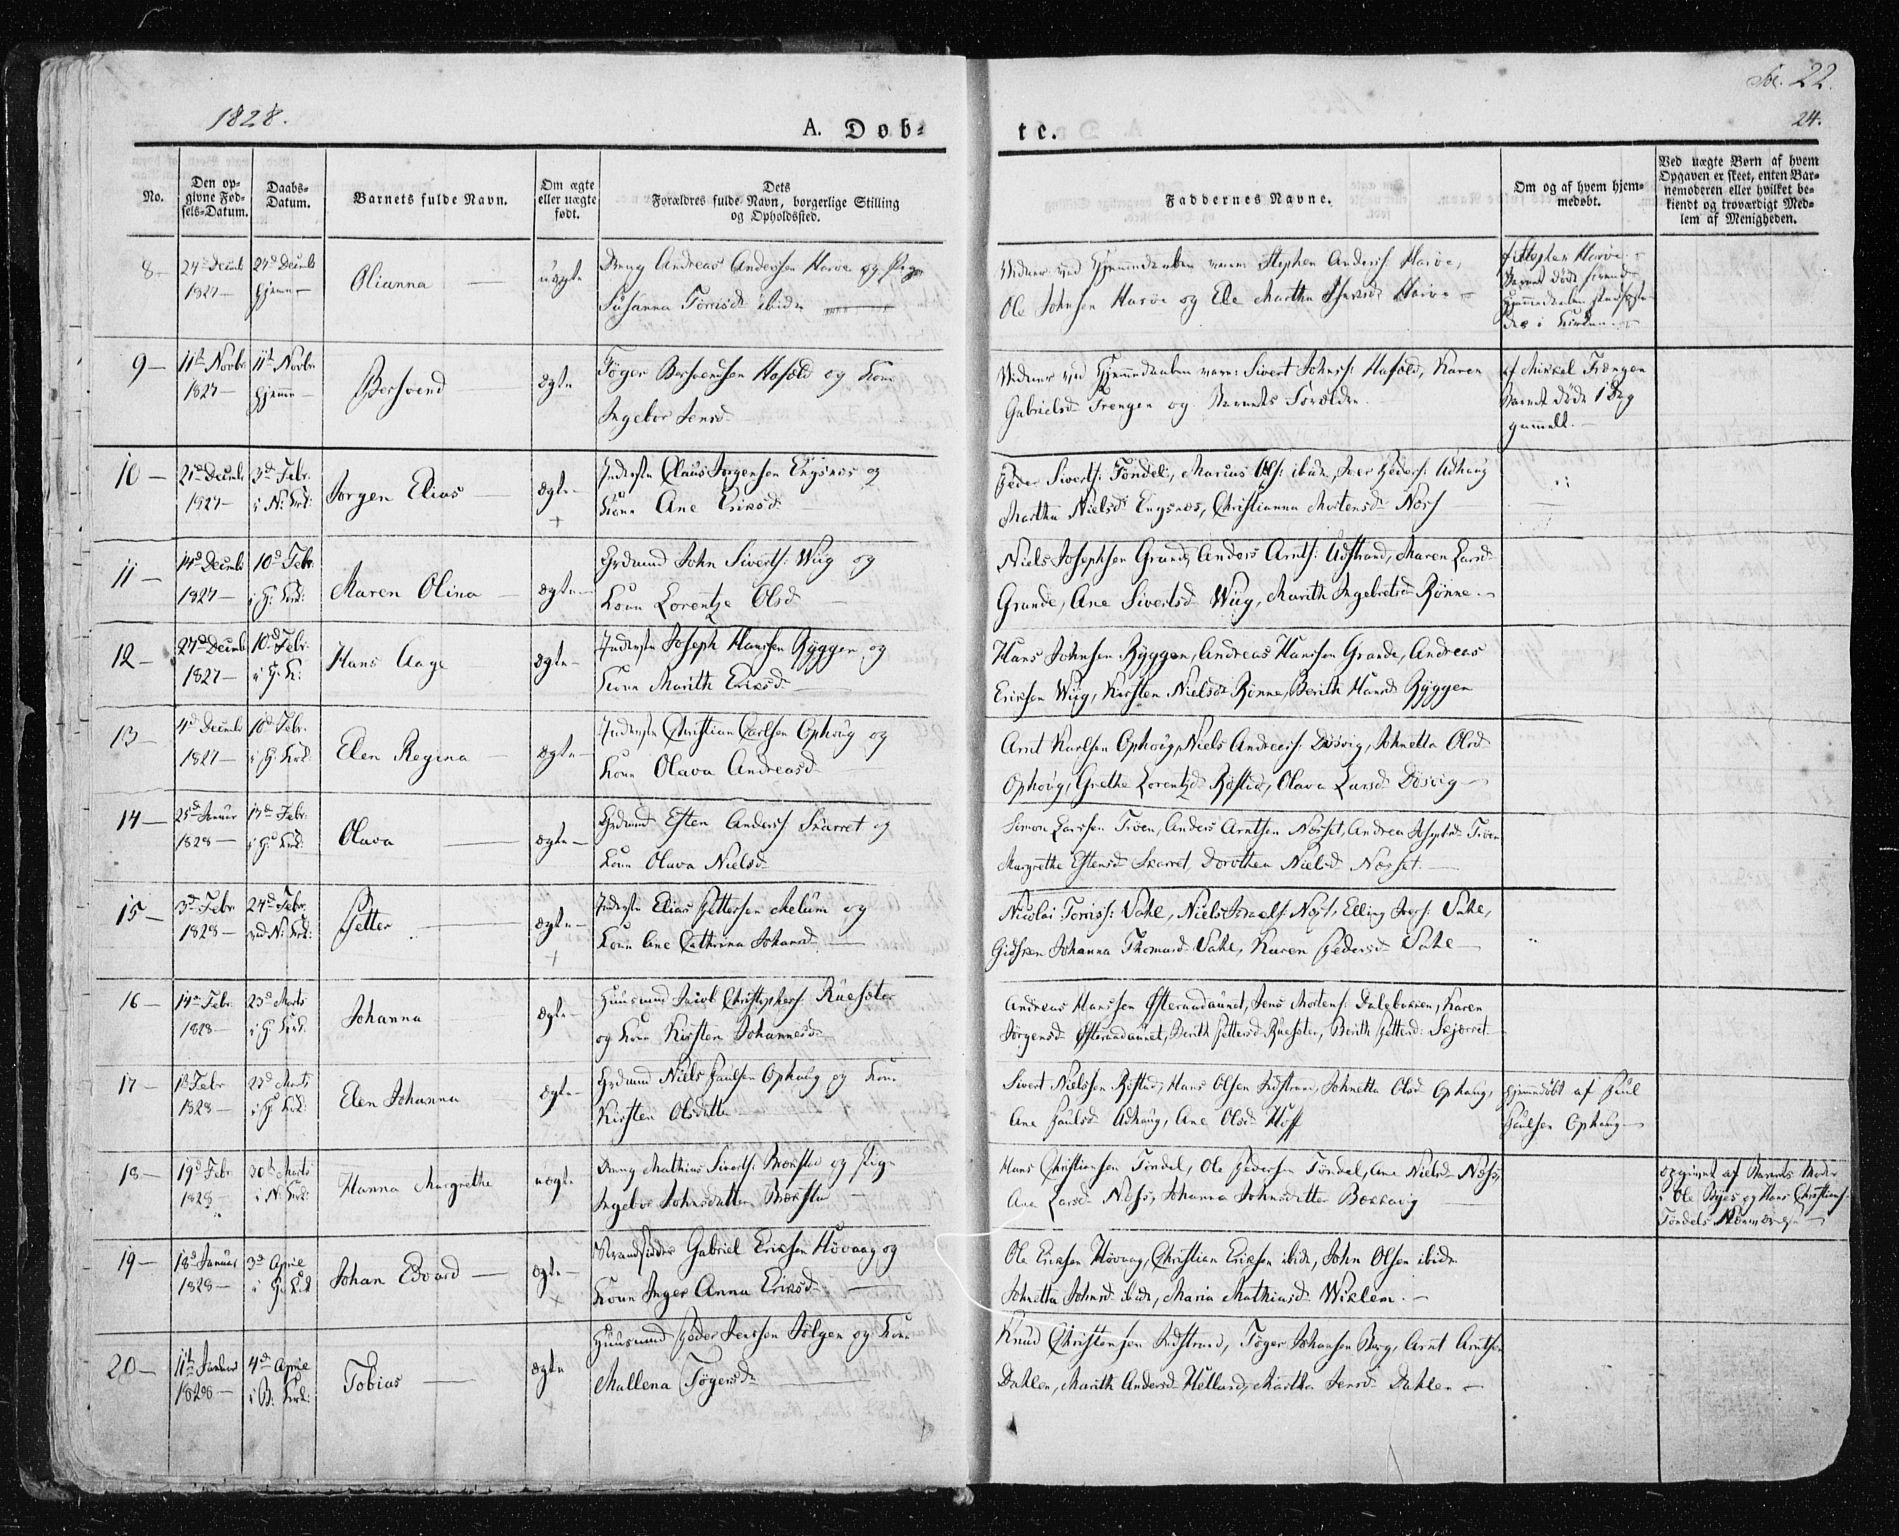 1828.
A. Döb-
te.
Fol. 22.
24.
No.
Den op-
givne Fød-
sels-Datum.
Daabs-
Datum.
Barnets fulde Navn.
Om ægte
eller uægte
født.
Dets
Forældres fulde Navn, borgerlige Stilling
og Opholdssted.
Faddernes Navne.
Om og af hvem hjem-
medøbt.
Ved uægte Børn af hvem
Opgaven er skeet, enten Bar-
nemoderen eller hvilket be-
kiendt og troværdigt Med-
lem af Menigheden.
8 24de Decmb 24de Decmb Olianna — uægte Dreng Andreas Anderssen Harøe og Pige
1827 — hjemme —
Susanna Torrisd. ibidm
Vidner ved Hjemmedaaben varer Stephen Anderss Harøe,
Ole Johnsen Harøe og Ele Martha Harøe —
af Stephen Harøe.
Barnet døde
i Kirken
9 — 11te Novbr 11te Novbr Bersvend ægte Tøger Bersvendsen Hasøld og Kone
1827 — hjemme —
Ingebor Jensd.
Vidner ved Hjemmedaaben vare: Sivert Johnss: Hasøld, Karen
Gabrielsd. Trengen og Barnets Forældre.
af Mikkel Trængen
Barnet døde 1 Dag
gammelt. —
10 — 21de Decmb 3de Febr. Jørgen Elias — ægte — Inderste Claus Jørgensen Engsnæs og
1827 — i N: Krk:
Kone Ane Eriksd.
Peder Siverts: Tøndel, Marius Ols: ibid, Iver Peders: Udhaug
Martha Nielsd. Engsnæs, Christianna Mortensd. Næss
11 — 14de Decmb 10de Febr. Maren Olina — ægte — Grdmand John Siverts: Wiig og
1827 — i H: Krk:
Kone Lorentze Olsd. —
Niels Josephsen Grande, Anders Arnts: Udstrand, Maren Larsd.
Grande, Ane Sivertsd. Wiig, Marith Ingebretsd. Rønne. —
12 — 27de Decmb 10de Febr. Hans Aage ægte — Inderste Joseph Hanssen Ryggen og
1827 — i H: K:
Kone Marith Eriksd. —
Hans Johnsen Ryggen, Andreas Hanssen Grande, Andreas
Eriksen Wiig, Kirsten Nielsd. Rønne, Berith Hansd. Ryggen
13 4de Decmb 10de Febr. Elen Regina — ægte — Inderste Christian Carlsen Ophoug og
1827 — i H: Krk:
Kone Olava Andreasd. —
Arnt Karlsen Ophoug, Niels Andreass: Døsvig, Johnetta Olsd.
Ophoug, Grethe Lorentzd. Røstad, Olava Larsd. Døsvig —
14 — 25de Januar 17de Febr. Olava — ægte — Grdmand Esten Anderss Skarret og
1828 — i H: Krk:
Kone Olava Nielsd.
Simon Larssen Troen, Anders Arntsen Næsset, Andrea Josephsd. Troen
Margrethe Estensd. Skarret Dorothea Nielsd. Næsset —
15 — 3de Febr 24de Febr. Petter — ægte — Inderste Elias Pettersen Melum og
1828 — ved N: Krk:
Kone Ane Cathrina Johansd. —
Nicolai Torriss: Vahl, Niels Israels: Næss, Elling Ivers: Vahl,
Gidsken Johanna Thomasd. Vahl, Karen Pedersd. Vahl —
16 — 14de Febr. 23de Marts Johanna — ægte — Huusmand Jacob Christophers: Ruesster
1828 — i H: Krk:
og Kone Kirsten Johannesd.
Andreas Hanssen Østeraadaunet, Jens Mortens: Dalebakken, Karen
Jørgensd. Østeraadaunet, Berith Pettersd. Ruesster, Berith Pettersd. Skjærret —
17 — 1te Febr. 23de Marts Elen Johanna ægte — Grdmand Niels Paulsen Ophaug og Kone
1828 — i H: Krk:
Kirsten Olsdatter
Sivert Nielssen Røstad, Hans Olsen Indstrand, Johnetta Olsd. Ophaug,
Ane Paulsd. Udhaug, Ane Olsd. Hoff
hjemmedøbt af Paul
Paulsen Ophaug —
18 — 19de Febr 30te Marts Hanna Margrethe uægte Dreng Mathias Siverts: Brekstad og Pige
1828 — i N: Krk:
Ingebor Johnsdatter Brekstad —
Hans Christiansen Tøndel, Ole Pedersen Tøndel, Ane Nielsd. Næss,
Ane Larsd. Næss, Johanna Johnsdatter Beckvig —
opgivet af Barnets Moder
i Ole Byes og Hans Christians:
Tøndels Nærværelse —
19 — 18de Januar 3de April Johan Edvard — ægte — Strandsidder Gabriel Eriksen Høvaag og
1828 — i H: Krk
Kone Inger Anna Eriksd. —
Ole Eriksen Høvaag, Christian Eriksen ibidm, John Olsen ibidm
Johnetta Johnsd. ibidm, Maria Mathiasd. Wiklem. —
20 — 11te Januar 4de April Tobias — ægte Huusmand Peder Jenssen Sølgen og Kone
1828 — i B: Krk:
Mallena Tøgersd. —
Knud Christensen Indstrand, Tøger Johansen Berg, Arnt Arntsen
Dahlen, Marith Andersd. Helland, Martha Jensd. Dahlen —